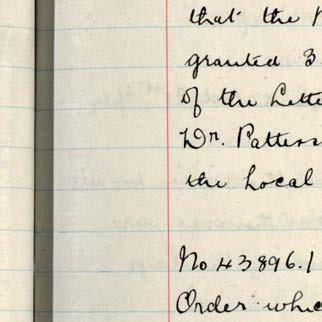 that the
granted 3
of the Lette
Dr. Patters
the Local
No 43896.1
Order whic